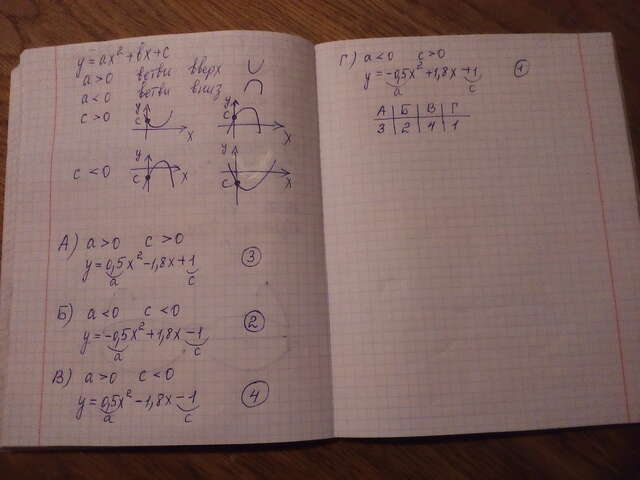 y=ax²+bx+c
a>0 ветви вверх
a<0 ветви вниз
c>0 y c x y c
c<0 y c x y c x
А) a>0 c>0
y=0,5x²-1,8x+1 ③
a c
Б) a<0 c<0
y=-0,5x²+1,8x-1 ②
a c
В) a>0 c<0
y=0,5x²-1,8x-1 ④
a c
Г) a<0 c>0
y=-0,5x²+1,8x+1 ①
a c
А Б В Г
3 2 4 1